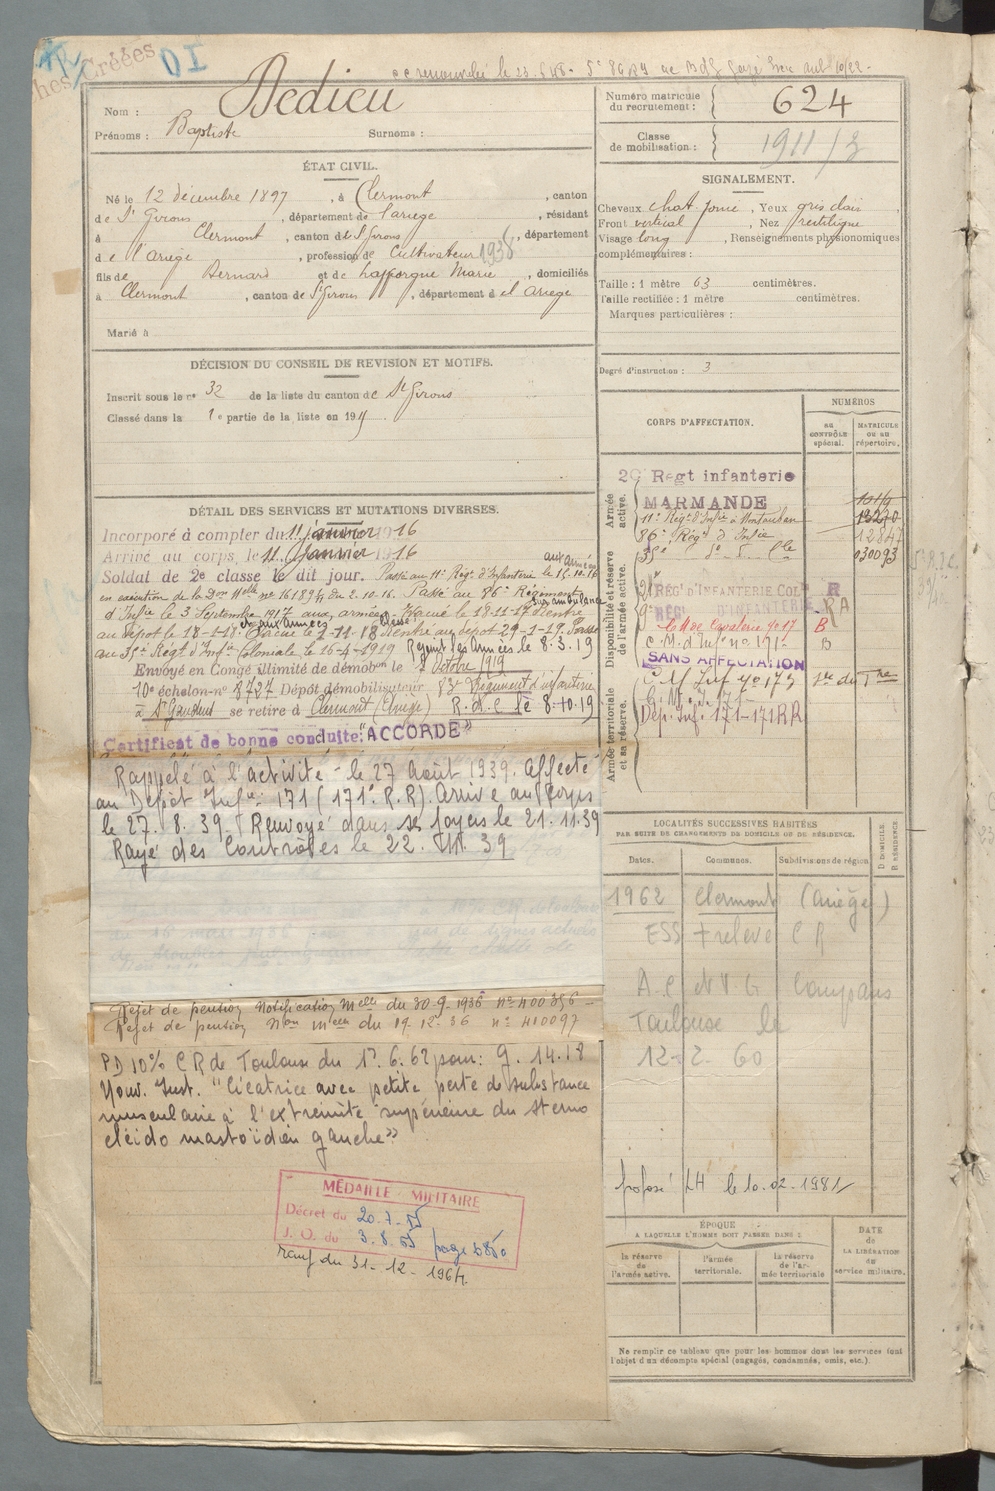 hes Créées
DI
Nom : Dedieu
Prénoms : Baptiste Surnoms :
Numéro matricule du recrutement : 624
Classe de mobilisation : 1911/3
ÉTAT CIVIL.
Né le 12 décembre 1897, à Clermont, canton
de St Girons, département de l'ariège, résidant
à Clermont, canton de St Girons, département
de l'ariège, profession de Cultivateur 1938
fils de Bernard et de Lafforgue Marie, domiciliés
à Clermont, canton de St Girons, département d el Ariege
Marié à
SIGNALEMENT.
Cheveux chat. foncé, Yeux gris clair,
Front vertical, Nez rectiligne
Visage long, Renseignements physionomiques
complémentaires :
Taille : 1 mètre 63 centimètres.
Taille rectifiée : 1 mètre centimètres.
Marques particulières :
Degré d'instruction : 3
DÉCISION DU CONSEIL DE REVISION ET MOTIFS.
Inscrit sous le n° 32 de la liste du canton de St Girons
Classé dans la 1e partie de la liste en 191
CORPS D'AFFECTATION.
NUMÉROS
AU CONTRÔLE spécial.
MATRICULE OU AU répertoire.
Armée active.
Disponibilité et réserve de l'armée active.
Armée territoriale et sa réserve.
20 Regt infanterie
MARMANDE
11e Régt d'Infie à Montauban
86e Régt d'Infie 12847
030093
RÉGt D'INFANTERIE COL R
RÉGt D'INFANTERIE RA
Cavalerie 9e 17 B
C. M. d'Infie no 171 B
SANS AFFECTATION
C M Inf no 173
Dép. Inf. 171-171 RR
DÉTAIL DES SERVICES ET MUTATIONS DIVERSES.
Incorporé à compter du 11 janvier 1916
Arrivé au corps, le 11 Janvier 1916
Soldat de 2e classe le dit jour. Passé au 11e Régt d'Infanterie le 15.10.16 aux armées
en exécution de la Don Mlle no 16189 du 2.10.16. Passé au 86e Régiment
d'Infie le 3 Septembre 1917 aux armées Evacué le 18-11-17 sur ambulance Rentré
au dépôt le 18-1-18. aux armées Evacué le 2-11-18 Rentré au dépôt 29-1-19. Passé
au 35e Régt d'Infie Coloniale le 16-4-1919 Rejoint les Armées le 8-3-19
Envoyé en Congé illimité de démobon le 8 Octobre 1919
10e échelon-no 8727 Dépôt démobilisateur 83e Régiment d'infanterie
à St Gaudens se retire à Clermont (Ariège) R.d.C le 8-10-19
Certificat de bonne conduite: "ACCORDÉ"
Rappelé à l'activité le 27 Août 1939. Affecté
au Dépôt Infie 171 (171e R.R). Arrivé au corps
le 27. 8. 39. Renvoyé dans ses foyers le 21. 11. 39
Rayé des Contrôles le 22. 39
Rejet de pension Notification Melle du 30-9-1936 no 400356
Rejet de pension Non melle du 19-12-36 no 410097
PD 10% CR de Toulouse du 1e. 6. 62 pour: G. 14.18
Nouv. Inst. "Cicatrice avec petite perte de substance
musculaire à l'extrémité supérieure du sterno
cléido mastoïdien gauche"
MÉDAILLE MILITAIRE
Décret du 20-7-55
J. O. du 3.8.55 page
rauf du 31-12-1964
LOCALITÉS SUCCESSIVES HABITÉES
PAR SUITE DE CHANGEMENTS DE DOMICILE OU DE RÉSIDENCE.
Dates. Communes. Subdivisions de région. D DOMICILE R RÉSIDENCE
1962 Clermont (Ariège)
ESS 7 relevé CR
A.C et V.G Compans
Toulouse le
12-2-60
proposé LH le 10-02-1981
ÉPOQUE
A LAQUELLE L'HOMME DOIT PASSER DANS :
la réserve de l'armée active.
l'armée territoriale.
la réserve de l'armée territoriale
DATE de LA LIBÉRATION du service militaire.
Ne remplir ce tableau que pour les hommes dont les services font
l'objet d'un décompte spécial (engagés, condamnés, omis, etc.).